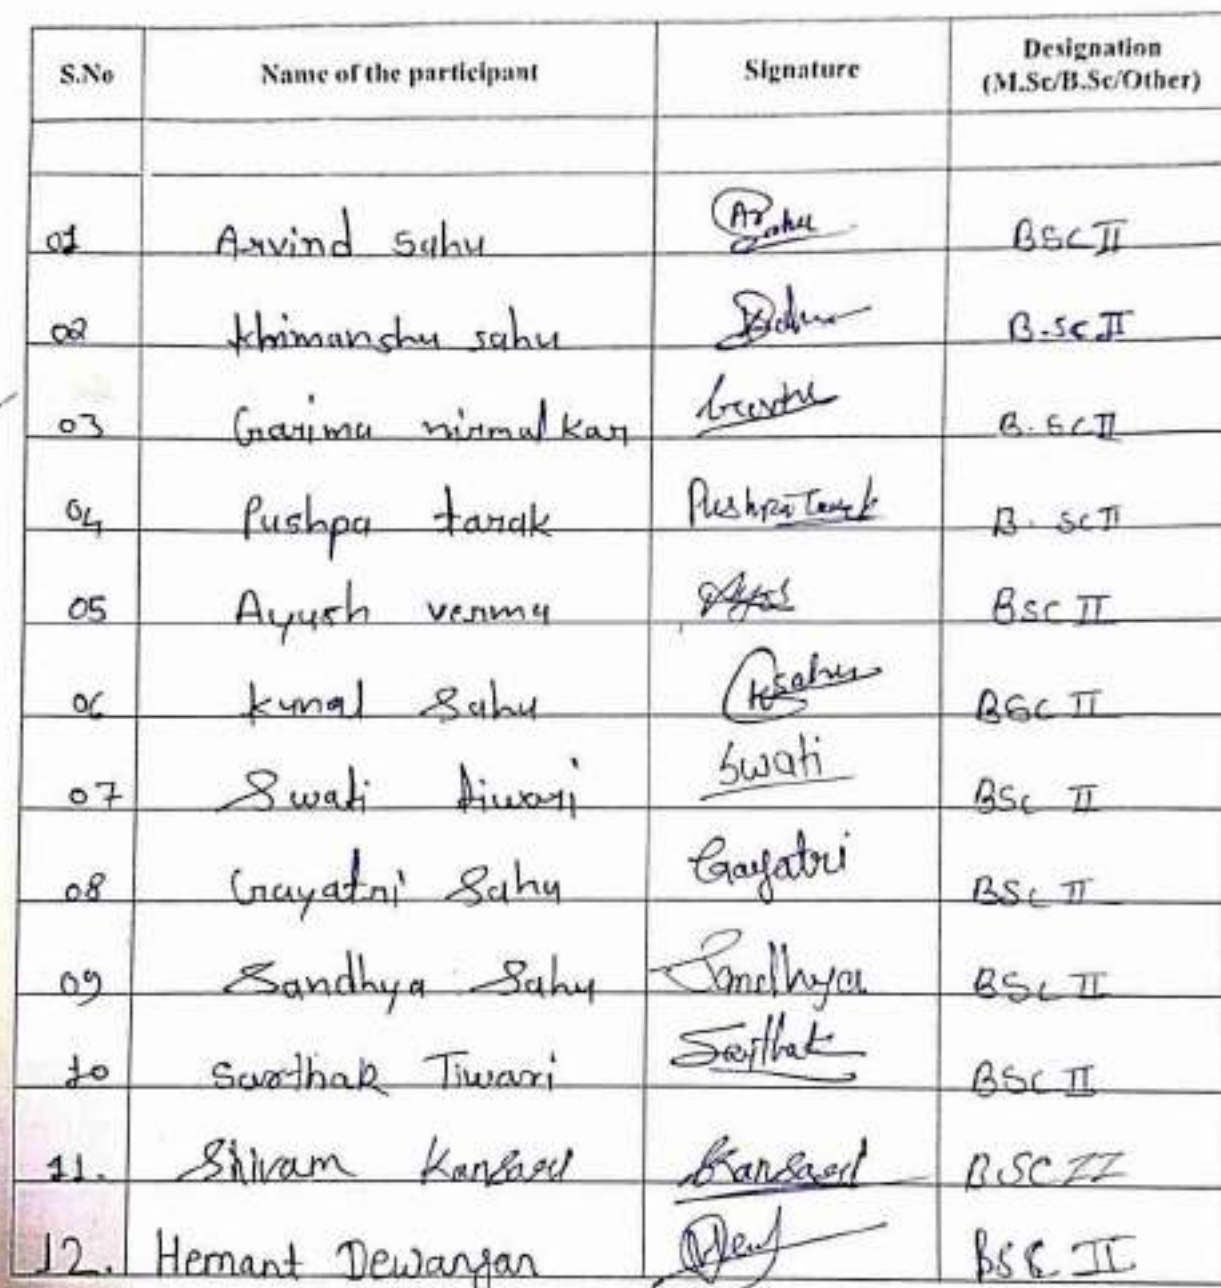 S.No Name of the participant Signature Designation
(M.Sc/B.Sc/Other)
01 Arvind sahu BSC II
02 khimanshu sahu B.Sc II
03 Garima nirmalkar B.Sc II
04 Pushpa tarak Pushpa Tarak B.Sc II
05 Ayush verma BSC II
06 kunal Sahu Ksahu BSC II
07 Swati tiwari Swati BSc II
08 Gayatri Sahu Gayatri BSc II
09 Sandhya Sahu Sandhya BSc II
10 Sarthak Tiwari Sarthak BSC II
11. Shivam Kansari Kansari B.SC II
12. Hemant Dewangan BSC II